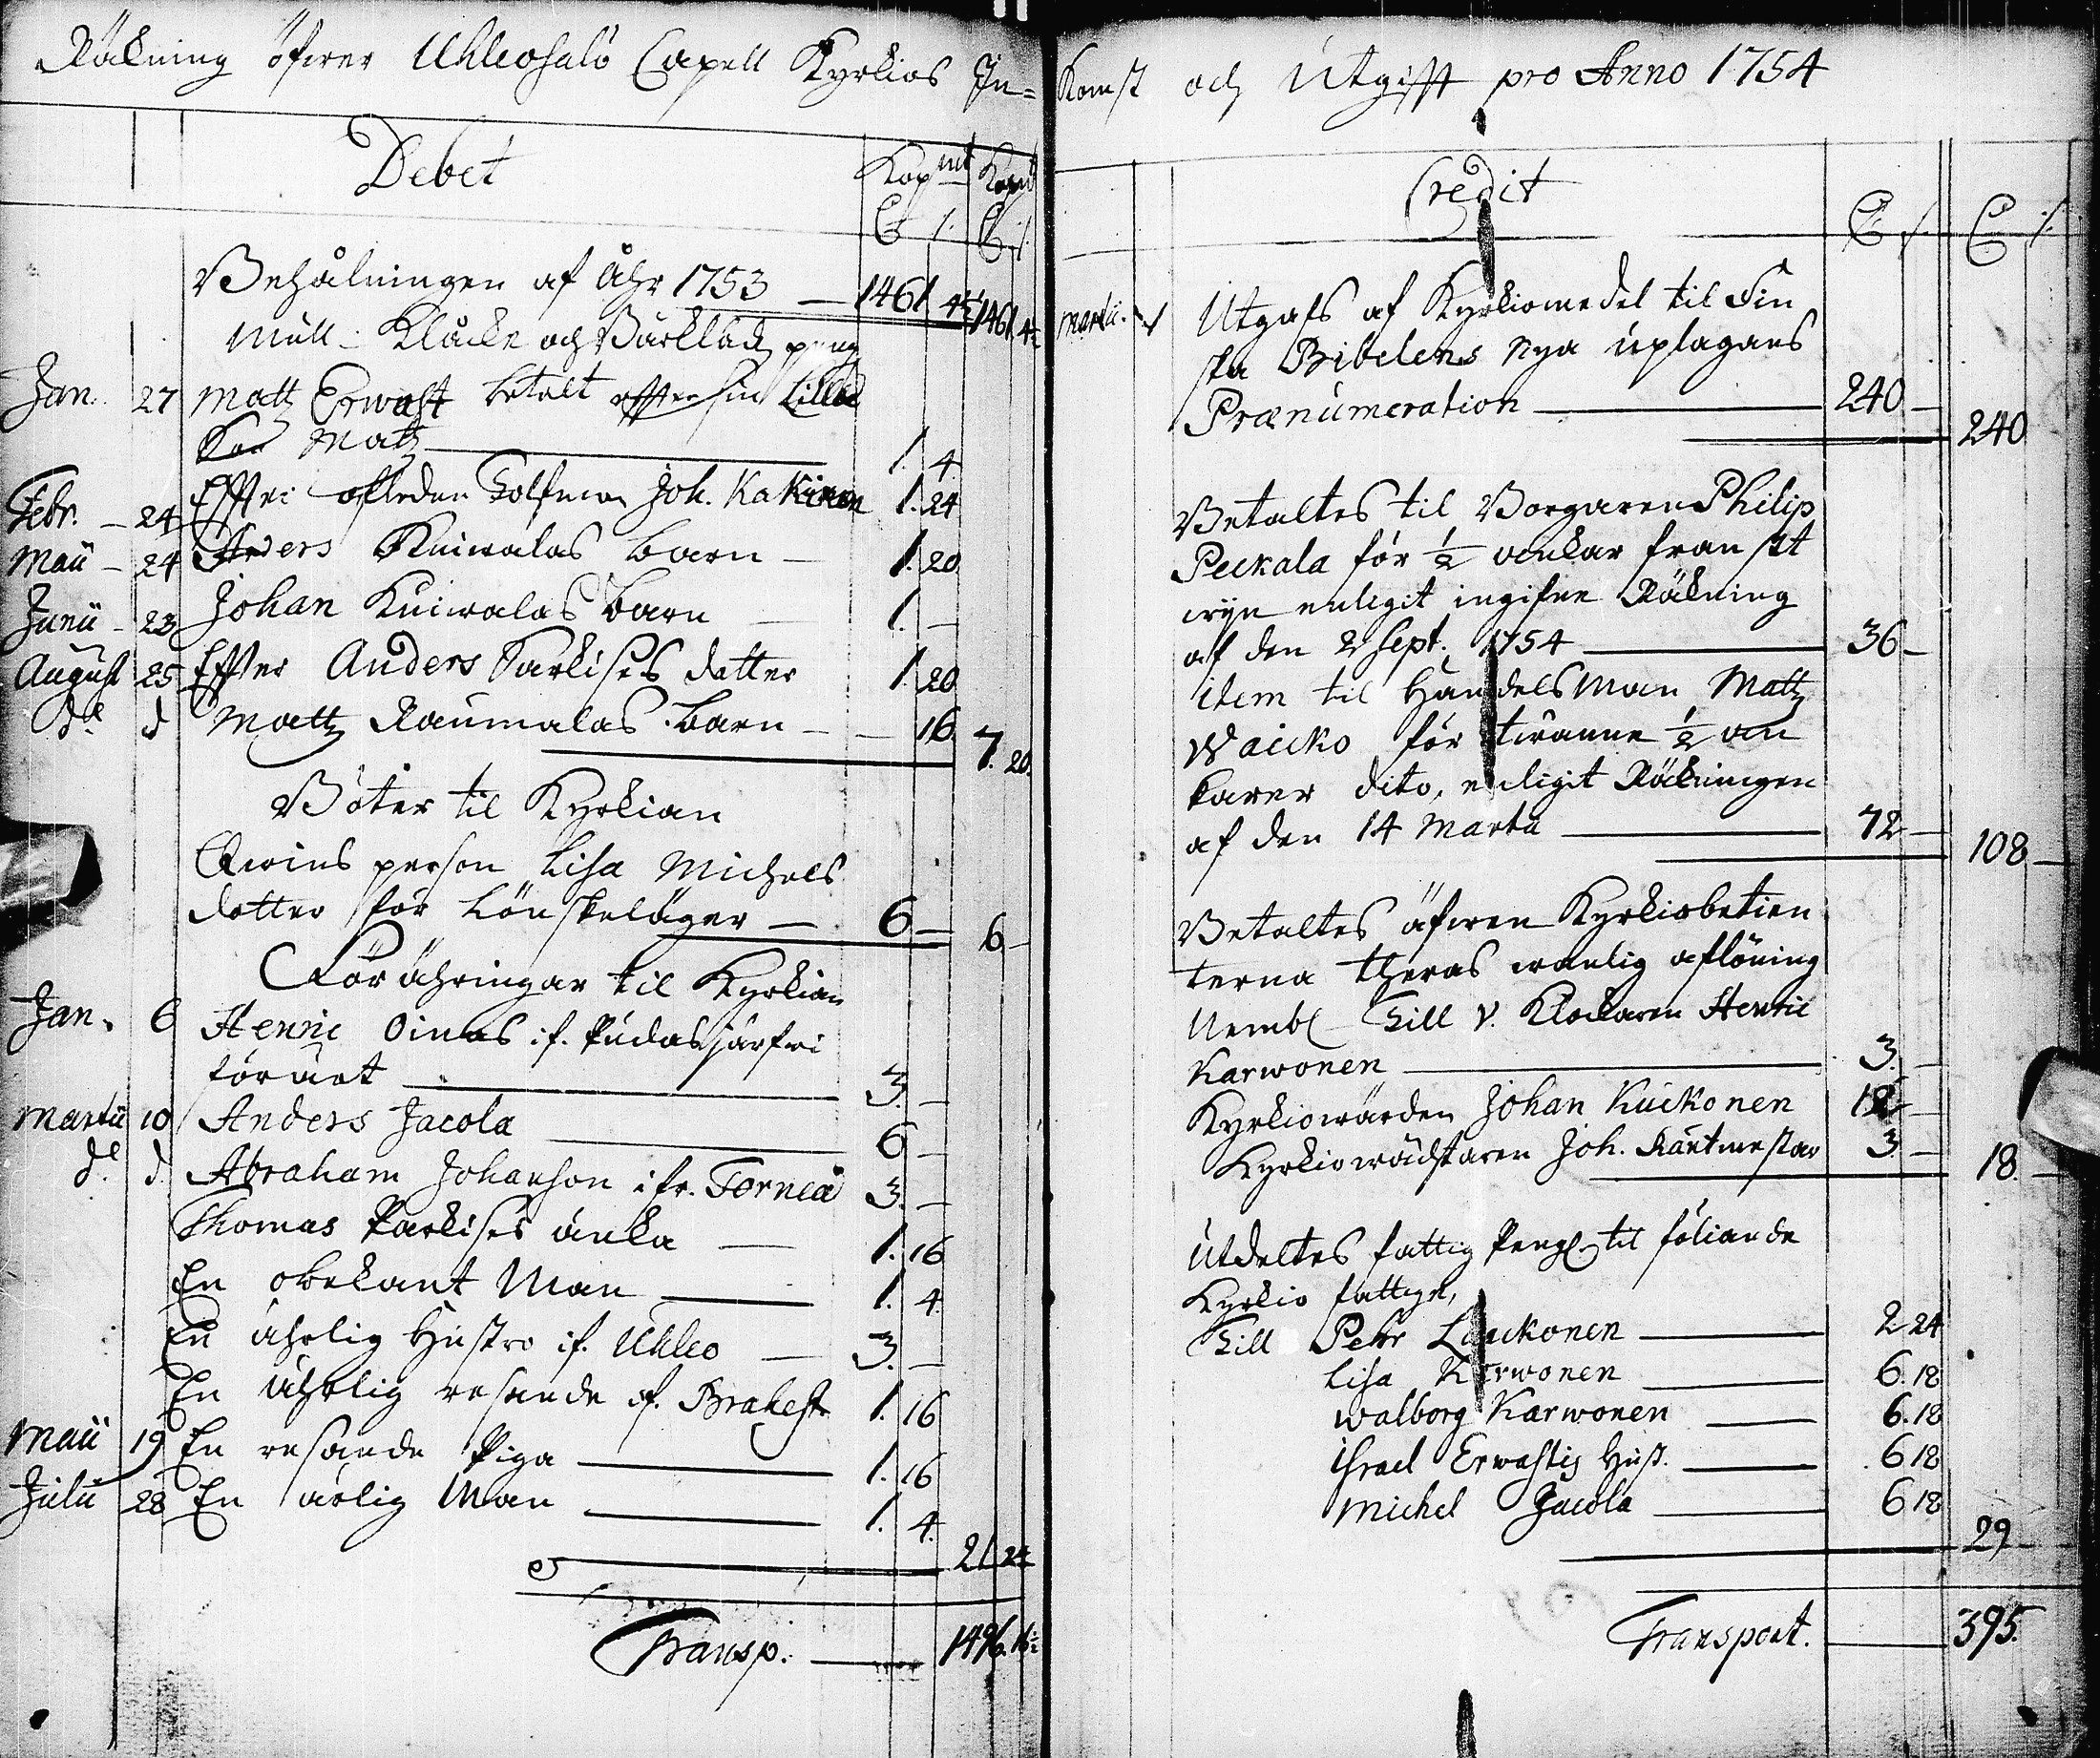 Räkning öfwer Uhleosalo Capell Kyrkios In=
Debet
Kopmt Kopmt
Behålningen af Åhr 1753 — 1461 4½ 1461. 4½
Mull- Klocke och Bårkläds peng
Jan. 27 Matz Erwast betalt effter sin Lilla
Son Matz — 1. 4
Febr. — 24 Effter afledne Tolfman Joh. Kakinen 1. 24
Maii — 24 Anders Kuiwalas barn — 1. 20
Junii — 23 Johan Kuiwalas barn — 1. —
August 25 Effter Anders Sarkises dotter 1. 20
do d Mattz Raumalas barn — — 16. 7. 20.
Böter til Kyrkian
Qwins person Lisa Michels
dotter för Lönskeläger — 6 — 6. —
Förähringar til Kyrkian
Jan. 6 Henric Oinas if. Pudasjärfwi
förärt — 3. —
Martii 10 Anders Jacola — 6 —
do d. Abraham Johanson ifr. Torneå 3. —
Thomas Parkises änka — 1. 16
En obekant Man — 1. 4.
En ährlig Hustro if. Uhleo — 3. —
En ährlig resande af. Brahest. 1. 16
Maii 19 En resande Piga — 1. 16
Julii 28 En ärlig Man — 1. 4.
21 24
Transp. — 1496. 16½
Komst och Utgifft pro Anno 1754
Credit
Martii. Utgafs af Kyrkiomedel til Fin
ska Bibelens nya uplagans
Prænumeration — 240 — 240
Betaltes til Borgaren Philip
Peckala för ½ ankar franskt
wijn enligit ingifne Räkning
af den 2 Sept. 1754 — 36 —
item til Handelsman Mattz
Waicko för twänne ½ an
karer dito, enligit Räkningen
af den 14 Martii — 72 — 108 —
Betaltes äfwen Kyrkiobetien
terna theras wanlig aflöning
Nembl Till v. Klockaren Henric
Karwonen — 3. —
Kyrkiowärden Johan Kuckonen 12 —
Kyrkiowäcktaren Joh. Räntmestar 3 — 18. —
Utdeltes fattig Peng til föliande
Kyrkio fattige,
Till Pehr Lauckonen — 2 24
Lisa Karwonen — 6. 18
Walborg Karwonen — 6. 18
Israel Erwastis Hust. — 6 18
Michel Jacola — 6 18
29 —
Transport. — 395.